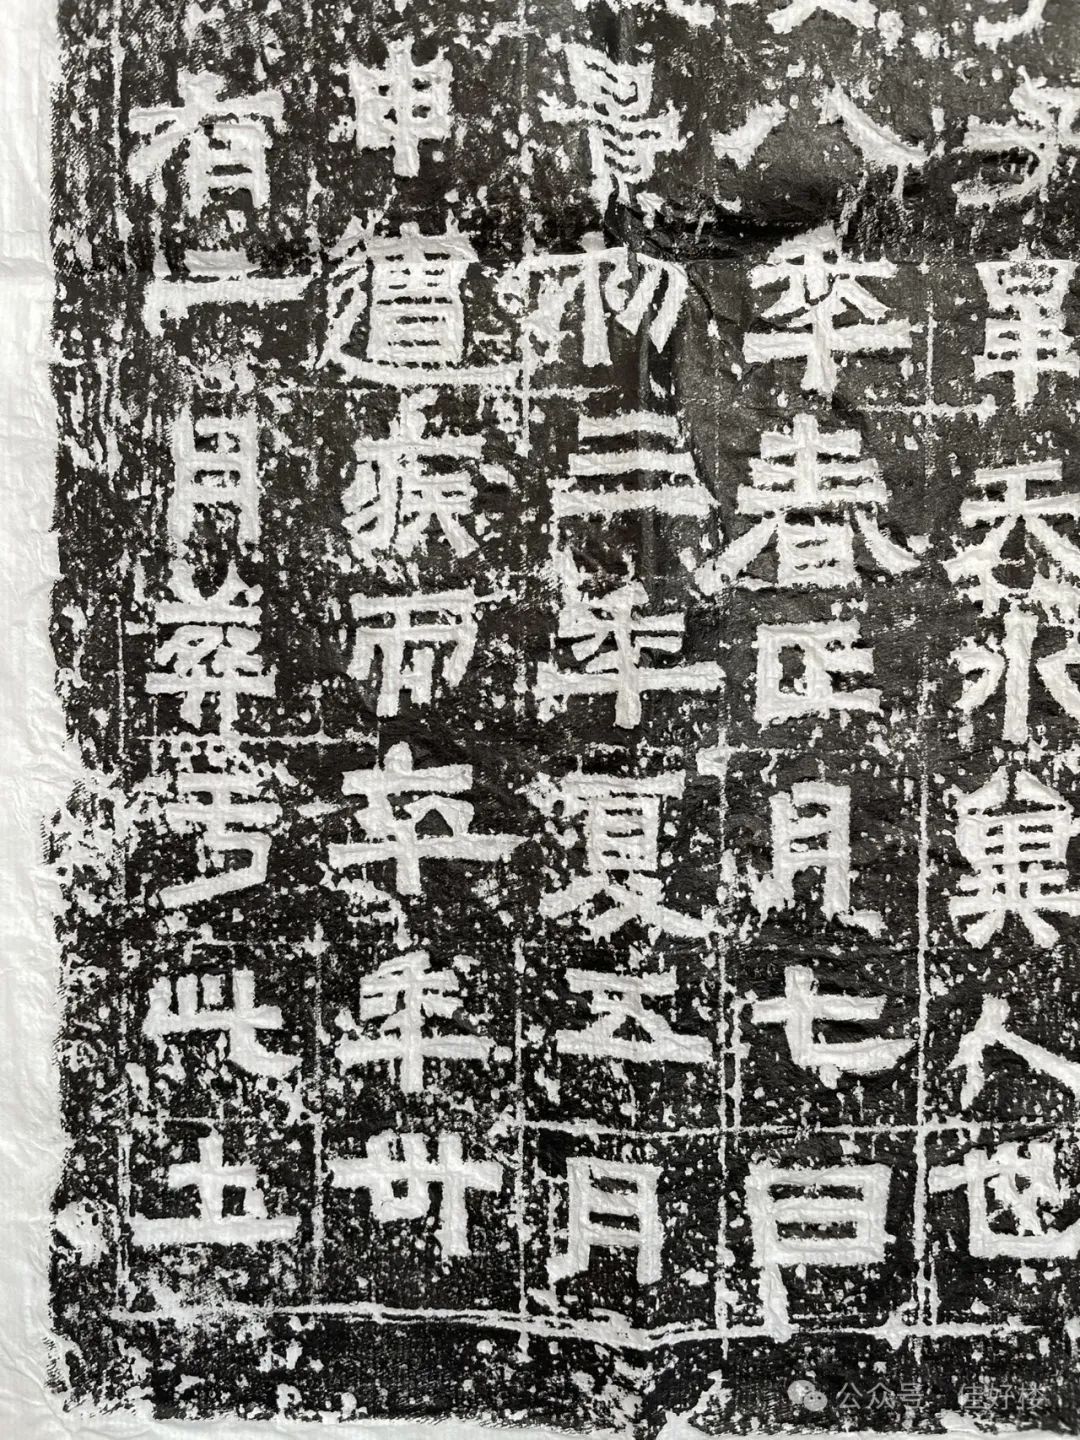 子 天水冀人也
八年春正月七日
景初三年夏五月
申遭疾而卒年卅
有二月葬于此土
公众号